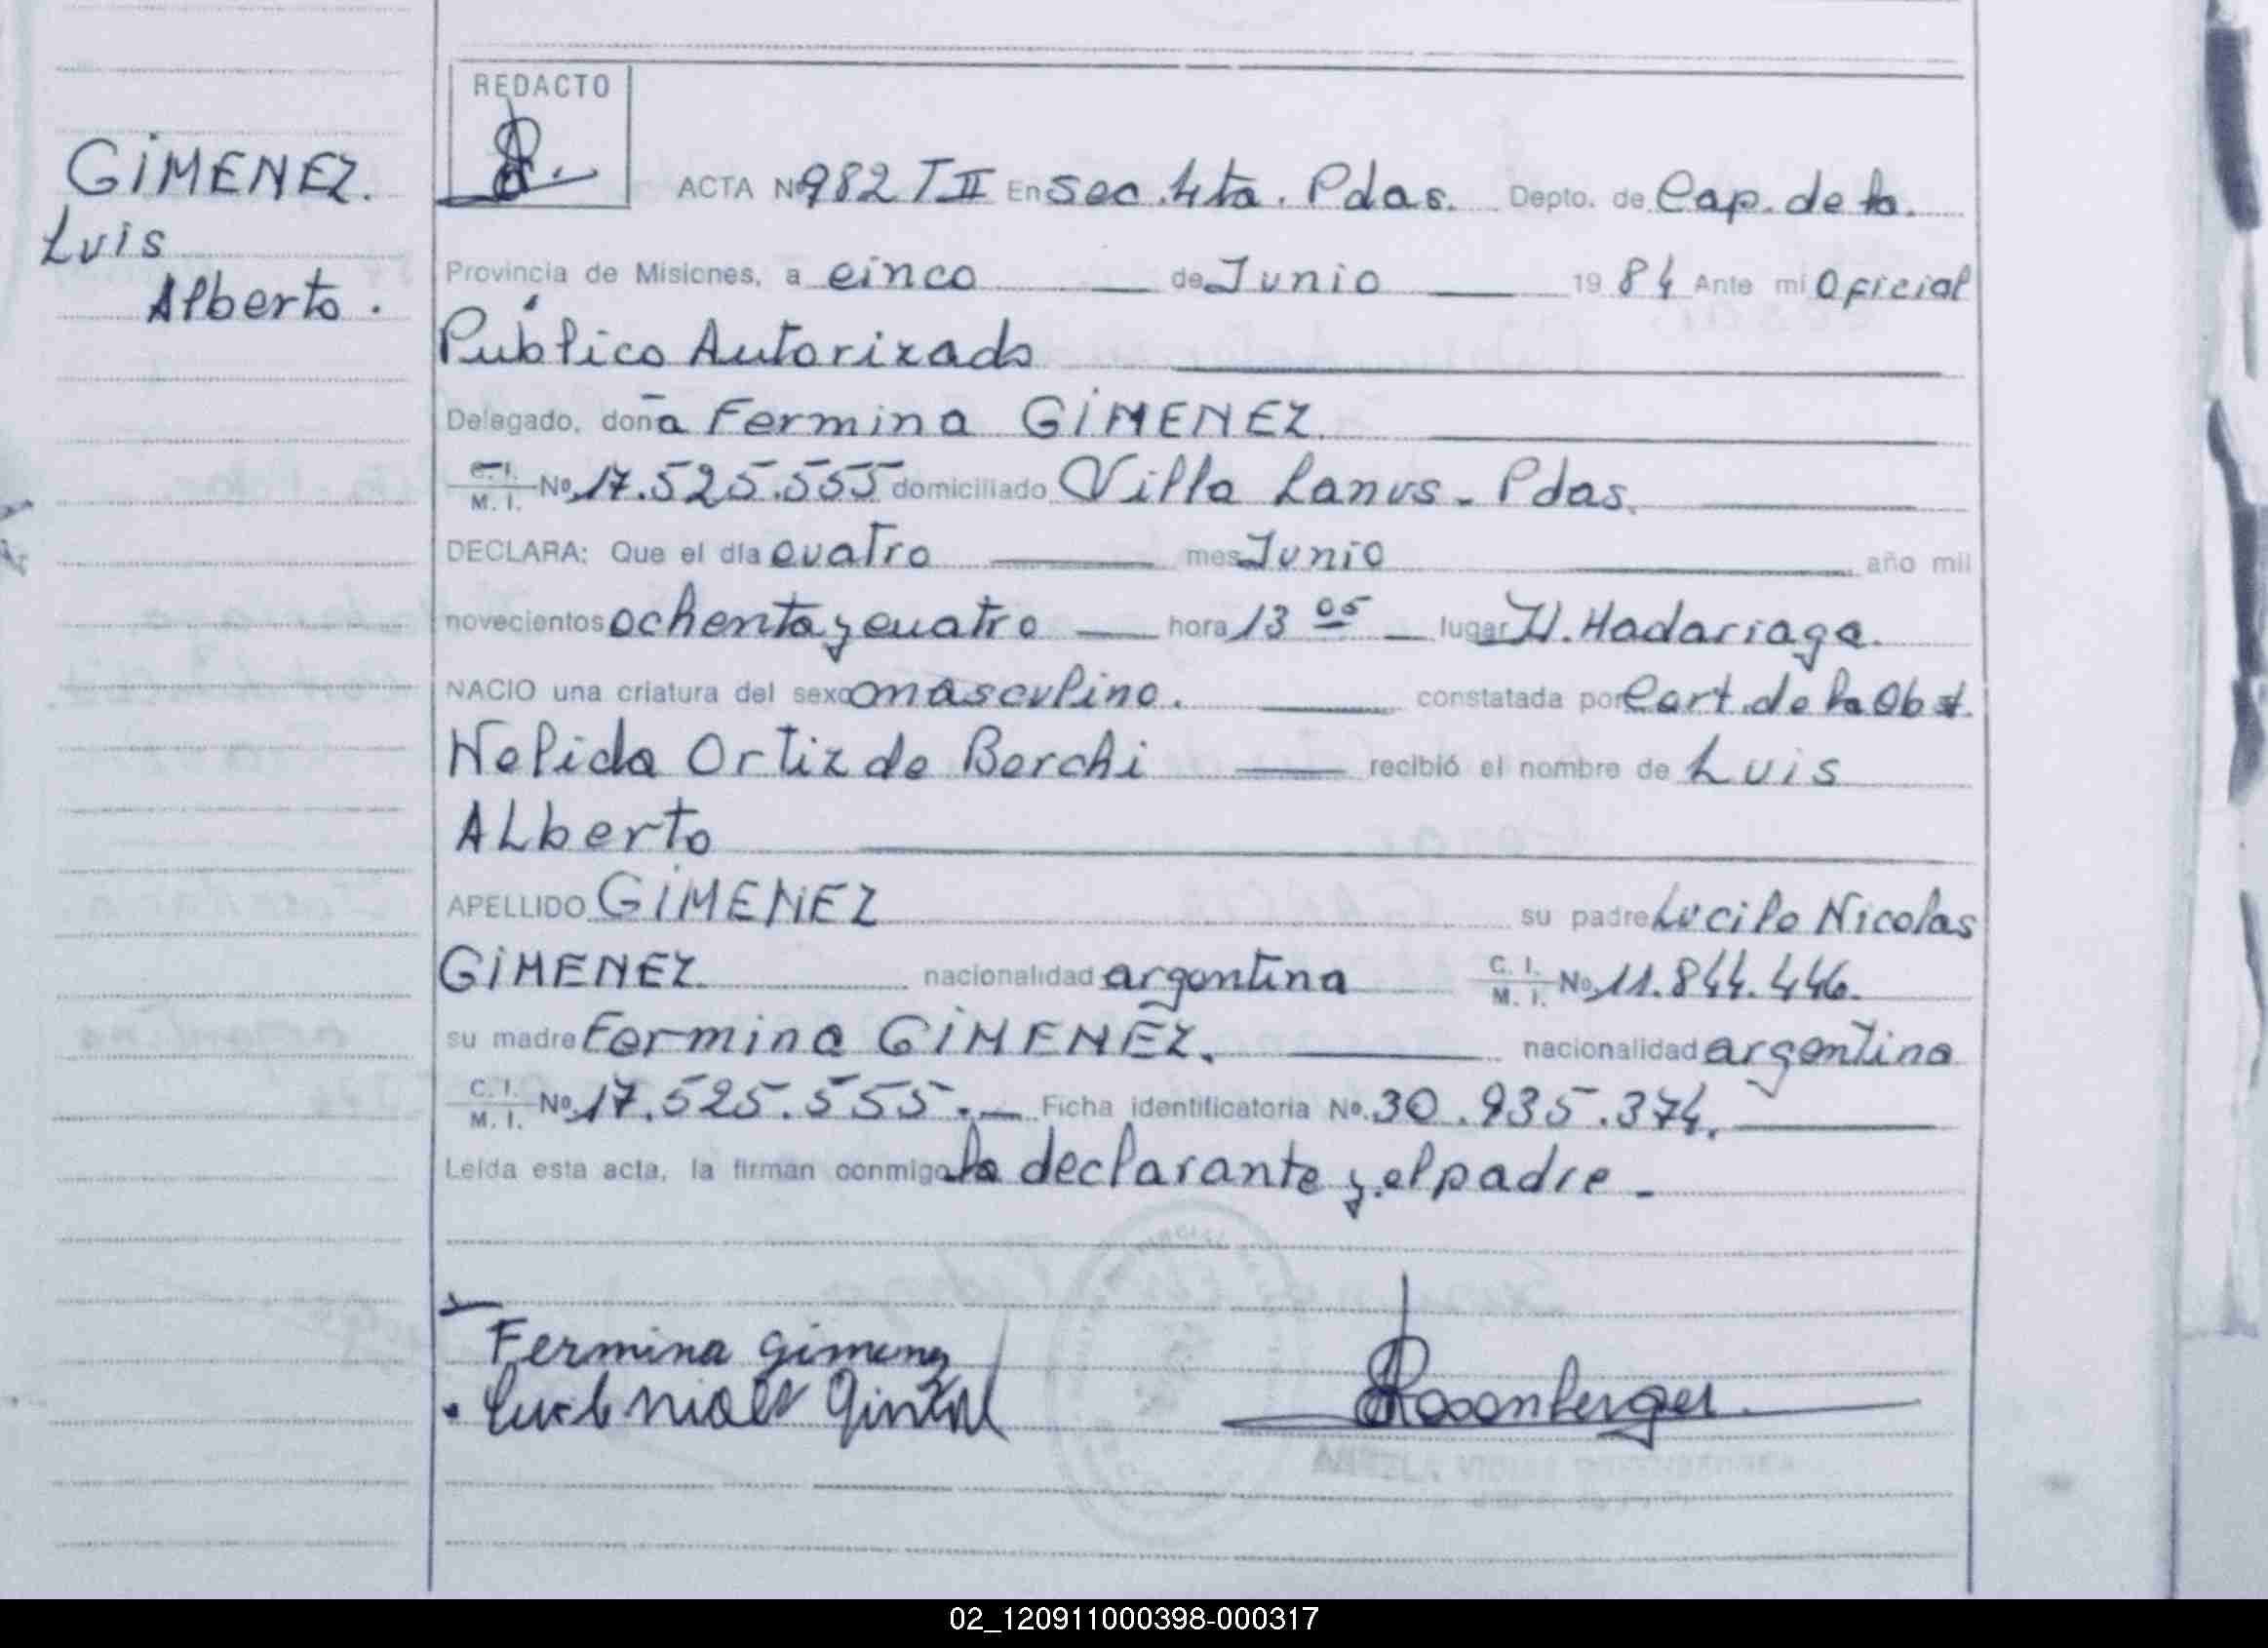 GIMENEZ.
Luis
Alberto.
REDACTO
ACTA Nº 982 T II En Sec. 4ta. Pdas. Depto. de Cap. de la.
Provincia de Misiones, a cinco de Junio 19 84 Ante mi Oficial
Público Autorizado
Delegado, doña Fermina GIMENEZ.
C. I. M. I. Nº 17.525.555 domiciliado Villa Lanus - Pdas.
DECLARA: Que el día cuatro mes Junio año mil
novecientos ochenta y cuatro hora 13 05 lugar H. Madariaga.
NACIO una criatura del sexo masculino. constatada por Cert. de la Obst.
Nelida Ortiz de Berchi recibió el nombre de Luis
ALberto
APELLIDO GIMENEZ su padre Lucilo Nicolas
GIMENEZ nacionalidad argentina C. I. M. I. Nº 11.844.446.
su madre Fermina GIMENEZ. nacionalidad argentina
C. I. M. I. Nº 17.525.555.- Ficha identificatoria Nº 30.935.374.
Leída esta acta, la firman conmigo la declarante y el padre -
Fermina Gimenez
Rosenberger
02_120911000398-000317